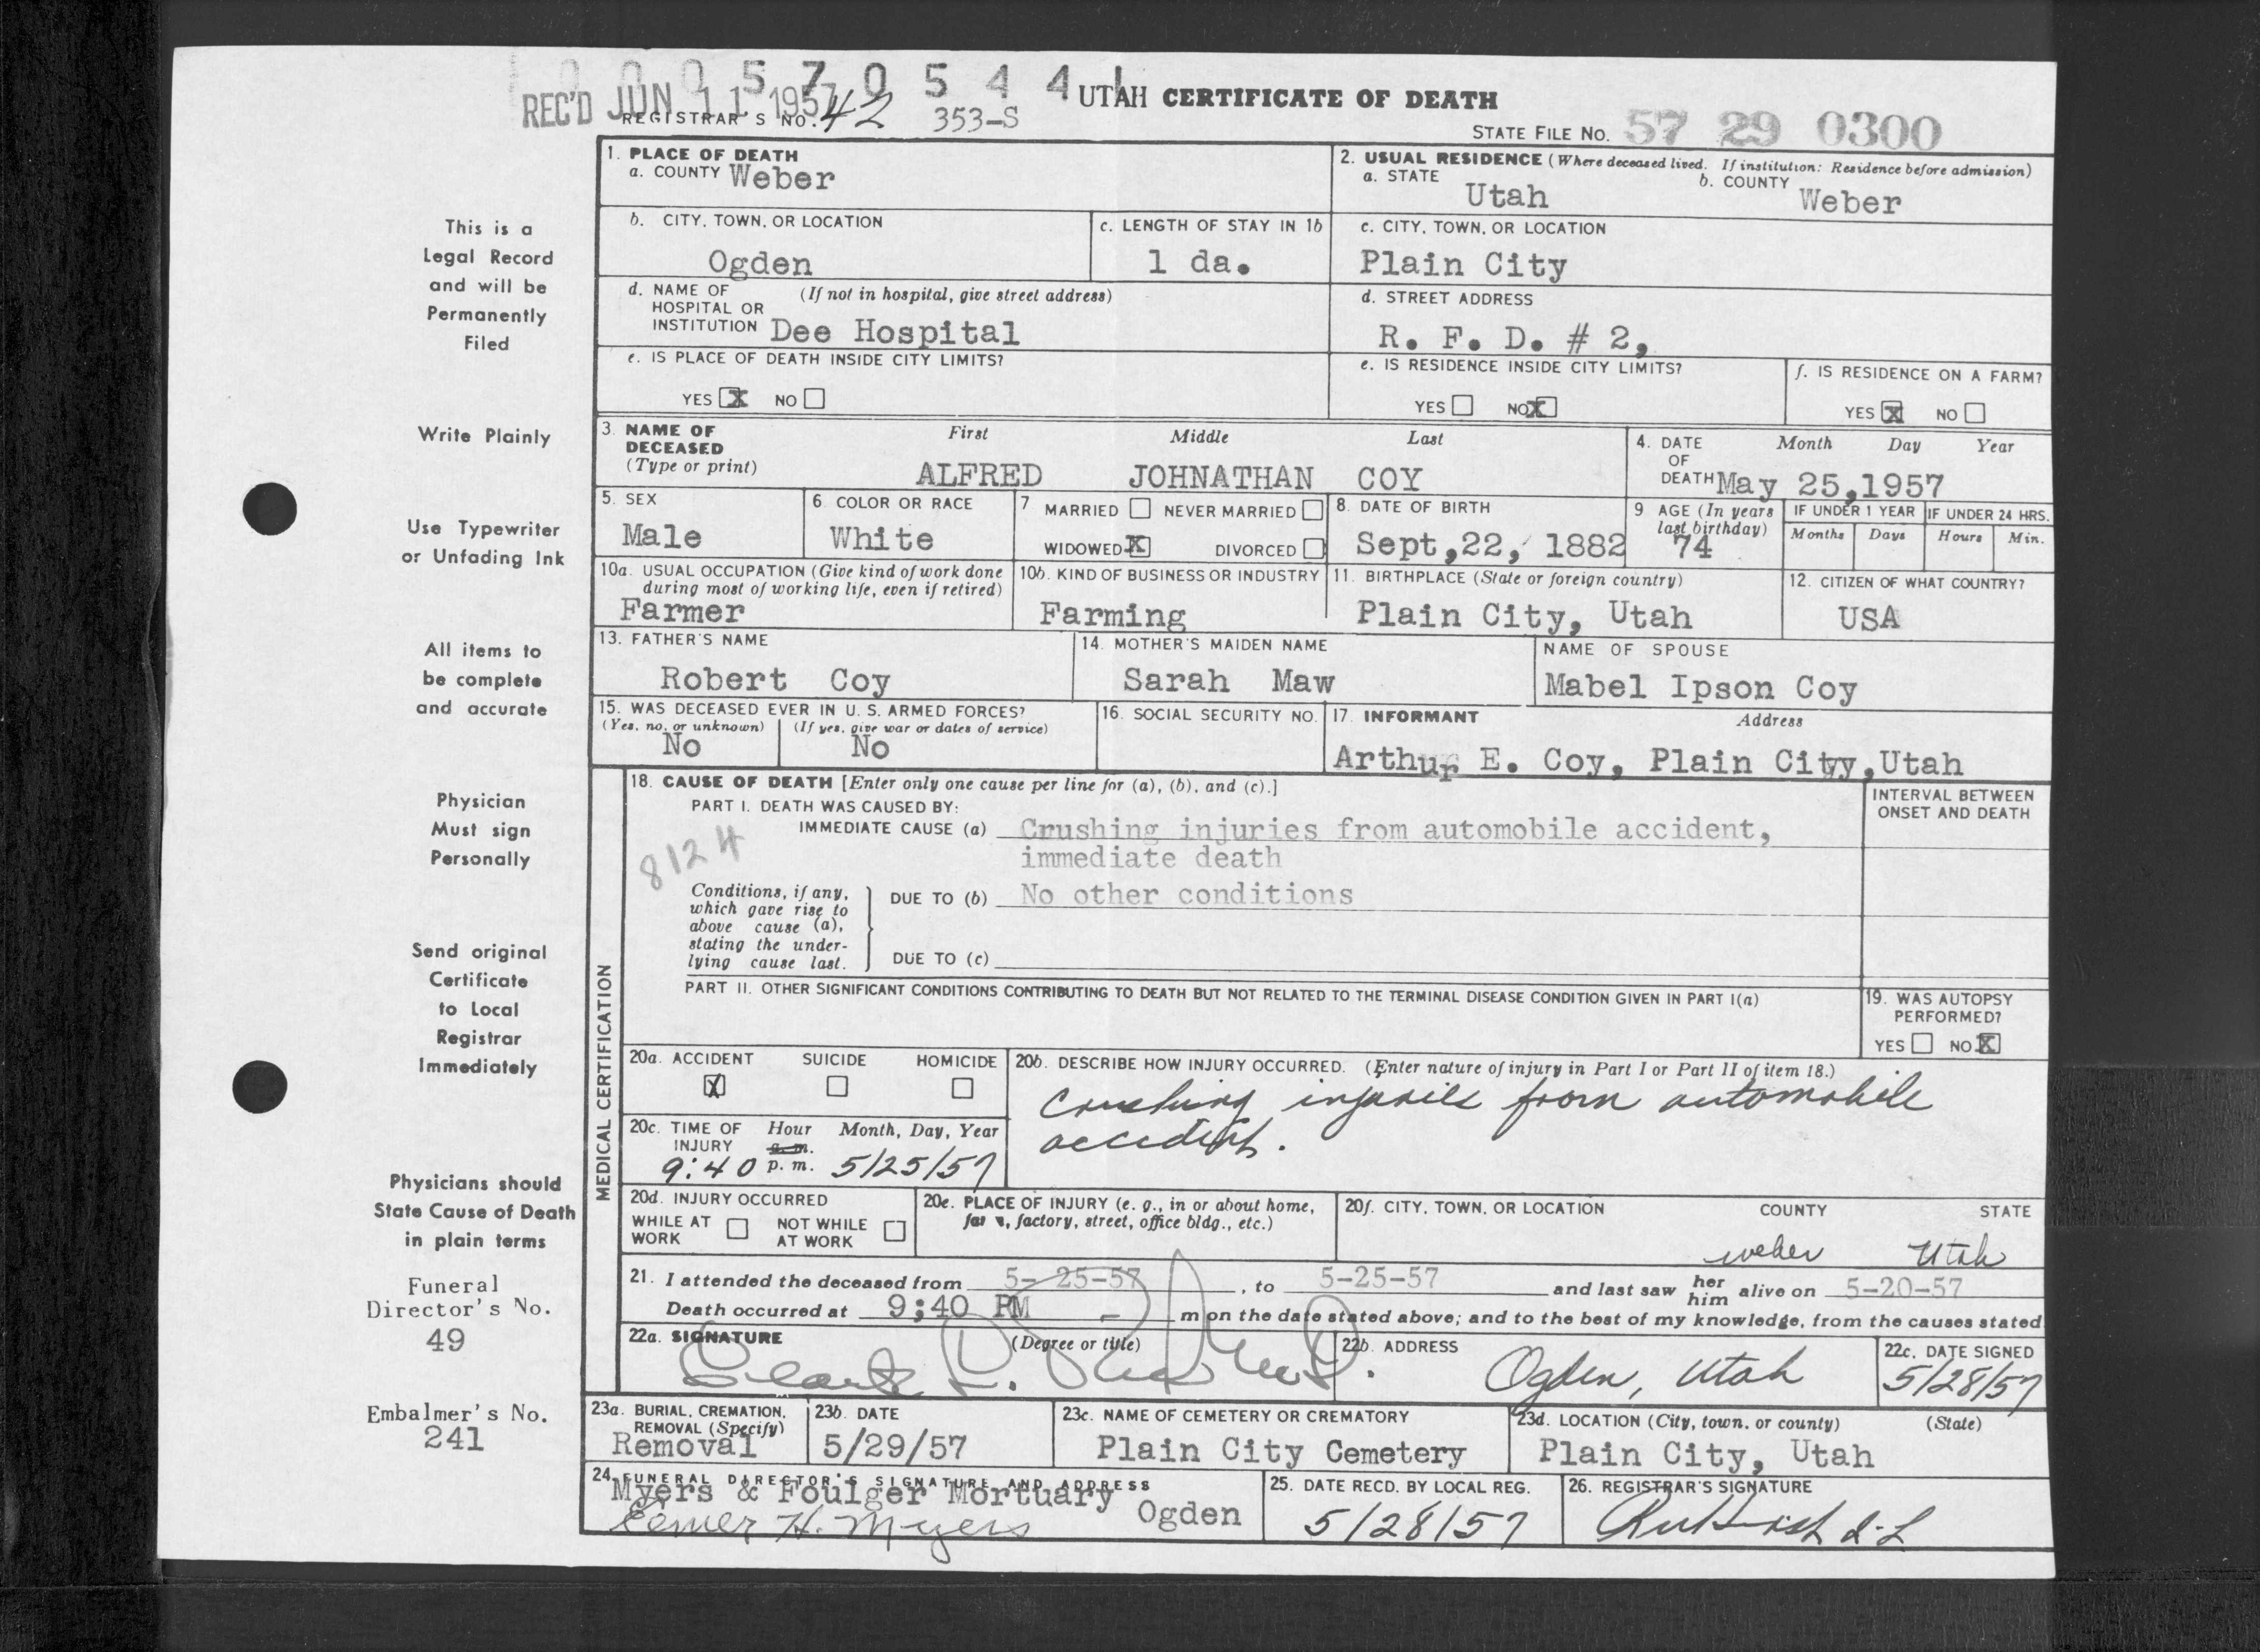 0 0 0 5 7 0 5 4 4 1
REC'D JUN 11 1957
REGISTRAR'S NO. 42 353-S
UTAH CERTIFICATE OF DEATH
STATE FILE NO. 57 29 0300
1. PLACE OF DEATH
a. COUNTY Weber
2. USUAL RESIDENCE (Where deceased lived. If institution: Residence before admission)
a. STATE Utah b. COUNTY Weber
b. CITY, TOWN, OR LOCATION
Ogden
c. LENGTH OF STAY IN 1b
1 da.
c. CITY, TOWN, OR LOCATION
Plain City
d. NAME OF HOSPITAL OR INSTITUTION (If not in hospital, give street address)
Dee Hospital
d. STREET ADDRESS
R. F. D. # 2,
e. IS PLACE OF DEATH INSIDE CITY LIMITS?
YES X NO
e. IS RESIDENCE INSIDE CITY LIMITS?
YES NO X
f. IS RESIDENCE ON A FARM?
YES X NO
3. NAME OF DECEASED (Type or print)
First Middle Last
ALFRED JOHNATHAN COY
4. DATE OF DEATH Month Day Year
May 25,1957
5. SEX
Male
6. COLOR OR RACE
White
7 MARRIED NEVER MARRIED
WIDOWED X DIVORCED
8. DATE OF BIRTH
Sept,22, 1882
9 AGE (In years last birthday)
74
IF UNDER 1 YEAR IF UNDER 24 HRS.
Months Days Hours Min.
10a. USUAL OCCUPATION (Give kind of work done during most of working life, even if retired)
Farmer
10b. KIND OF BUSINESS OR INDUSTRY
Farming
11. BIRTHPLACE (State or foreign country)
Plain City, Utah
12. CITIZEN OF WHAT COUNTRY?
USA
13. FATHER'S NAME
Robert Coy
14. MOTHER'S MAIDEN NAME
Sarah Maw
NAME OF SPOUSE
Mabel Ipson Coy
15. WAS DECEASED EVER IN U. S. ARMED FORCES?
(Yes, no, or unknown) (If yes, give war or dates of service)
No No
16. SOCIAL SECURITY NO.
17. INFORMANT Address
Arthur E. Coy, Plain City,Utah
MEDICAL CERTIFICATION
18. CAUSE OF DEATH [Enter only one cause per line for (a), (b), and (c).]
INTERVAL BETWEEN ONSET AND DEATH
PART I. DEATH WAS CAUSED BY:
IMMEDIATE CAUSE (a) Crushing injuries from automobile accident,
immediate death
8124
Conditions, if any, which gave rise to above cause (a), stating the underlying cause last.
DUE TO (b) No other conditions
DUE TO (c)
PART II. OTHER SIGNIFICANT CONDITIONS CONTRIBUTING TO DEATH BUT NOT RELATED TO THE TERMINAL DISEASE CONDITION GIVEN IN PART I(a)
19. WAS AUTOPSY PERFORMED?
YES NO X
20a. ACCIDENT SUICIDE HOMICIDE
X
20b. DESCRIBE HOW INJURY OCCURRED. (Enter nature of injury in Part I or Part II of item 18.)
Crushing injuries from automobile
accident.
20c. TIME OF INJURY Hour Month, Day, Year
a.m.
9:40 p. m. 5/25/57
20d. INJURY OCCURRED
WHILE AT WORK NOT WHILE AT WORK
20e. PLACE OF INJURY (e. g., in or about home, farm, factory, street, office bldg., etc.)
20f. CITY, TOWN, OR LOCATION COUNTY STATE
weber Utah
21. I attended the deceased from 5- 25-57, to 5-25-57 and last saw her him alive on 5-20-57
Death occurred at 9;40 PM - m on the date stated above; and to the best of my knowledge, from the causes stated
22a. SIGNATURE (Degree or title)
22b. ADDRESS
Ogden, Utah
22c. DATE SIGNED
5/28/57
23a. BURIAL, CREMATION, REMOVAL (Specify)
Removal
23b. DATE
5/29/57
23c. NAME OF CEMETERY OR CREMATORY
Plain City Cemetery
23d. LOCATION (City, town, or county) (State)
Plain City, Utah
24. FUNERAL DIRECTOR'S SIGNATURE AND ADDRESS
Myers & Foulger Mortuary
Ogden
Elmer H. Myers
25. DATE RECD. BY LOCAL REG.
5/28/57
26. REGISTRAR'S SIGNATURE
This is a
Legal Record
and will be
Permanently
Filed
Write Plainly
Use Typewriter
or Unfading Ink
All items to
be complete
and accurate
Physician
Must sign
Personally
Send original
Certificate
to Local
Registrar
Immediately
Physicians should
State Cause of Death
in plain terms
Funeral
Director's No.
49
Embalmer's No.
241